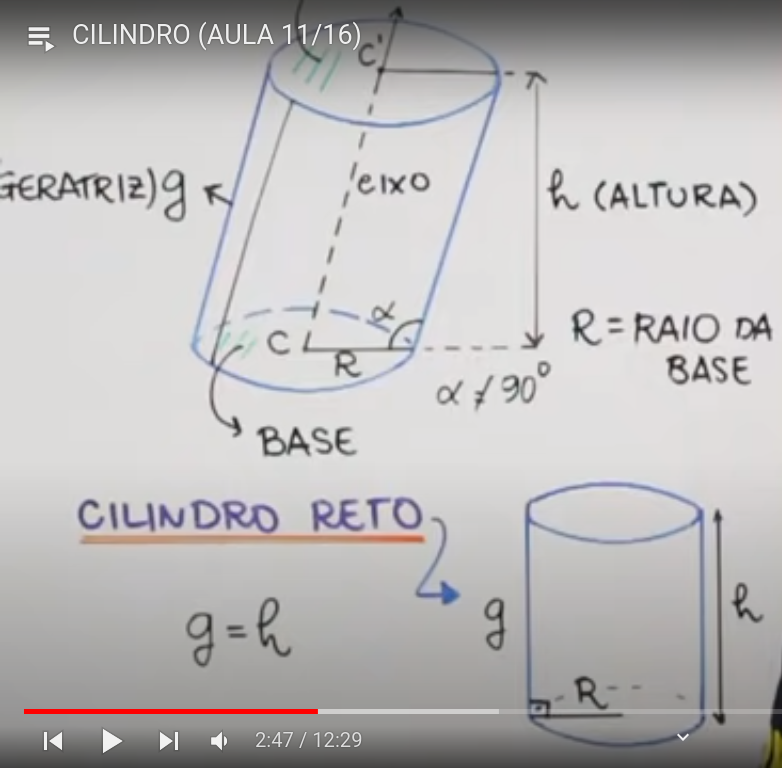 CILINDRO (AULA 11/16)
C'
GERATRIZ) g
eixo
h (ALTURA)
α
C
R
R = RAIO DA
BASE
α ≠ 90°
BASE
CILINDRO RETO
g = h
g
h
R
2:47 / 12:29